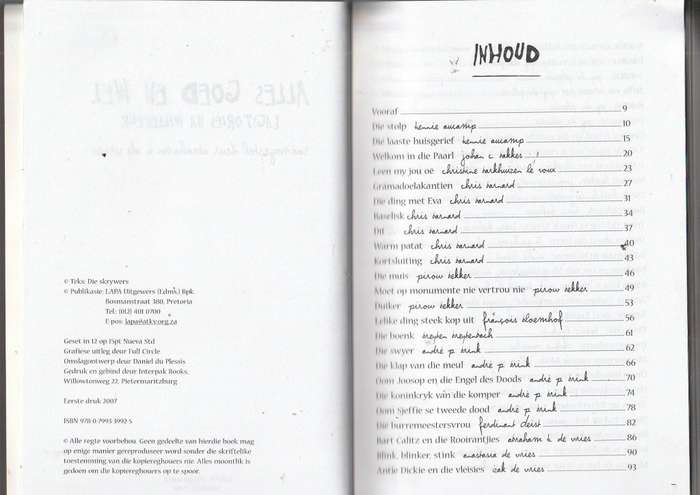 © Teks: Die skrywers
© Publikasie: LAPA Uitgewers (Edms) Bpk.
Bosmanstraat 380, Pretoria
Tel: (012) 401 0700
E-pos: lapa@atkv.org.za
Geset in 12 op 15pt Nueva Std
Grafiese uitleg deur Full Circle
Omslagontwerp deur Daniel du Plessis
Gedruk en gebind deur Interpak Books,
Willowtonweg 22, Pietermaritzburg
Eerste druk 2007
ISBN 978 0 7993 3992 5
© Alle regte voorbehou. Geen gedeelte van hierdie boek mag
op enige manier gereproduseer word sonder die skriftelike
toestemming van die kopiereghouers nie. Alles moontlik is
gedoen om die kopiereghouers op te spoor.
INHOUD
Vooraf 9
Die stolp hennie aucamp 10
Die laaste huisgerief hennie aucamp 15
Welkom in die Paarl johan c bakkes 20
Leen my jou oë christine barkhuizen le roux 23
Gramadoelakantien chris barnard 27
Die ding met Eva chris barnard 31
Baselisk chris barnard 34
Dit chris barnard 37
Warm patat chris barnard 40
Kortsluiting chris barnard 43
Die muis pirow bekker 46
Moet op monumente nie vertrou nie pirow bekker 49
Duiker pirow bekker 53
Lelike ding steek kop uit françois bloemhof 56
Die boenk breyten breytenbach 61
Die swyer andré p brink 62
Die klap van die meul andré p brink 66
Oom Joosop en die Engel des Doods andré p brink 70
Die koninkryk van die komper andré p brink 74
Oom Sjeffie se tweede dood andré p brink 78
Die burremeestersvrou ferdinant deist 82
Bart Calitz en die Roorantjies abraham h de vries 86
Blink, blinker, stink anastasia de vries 90
Antie Dickie en die vleisies izak de vries 93